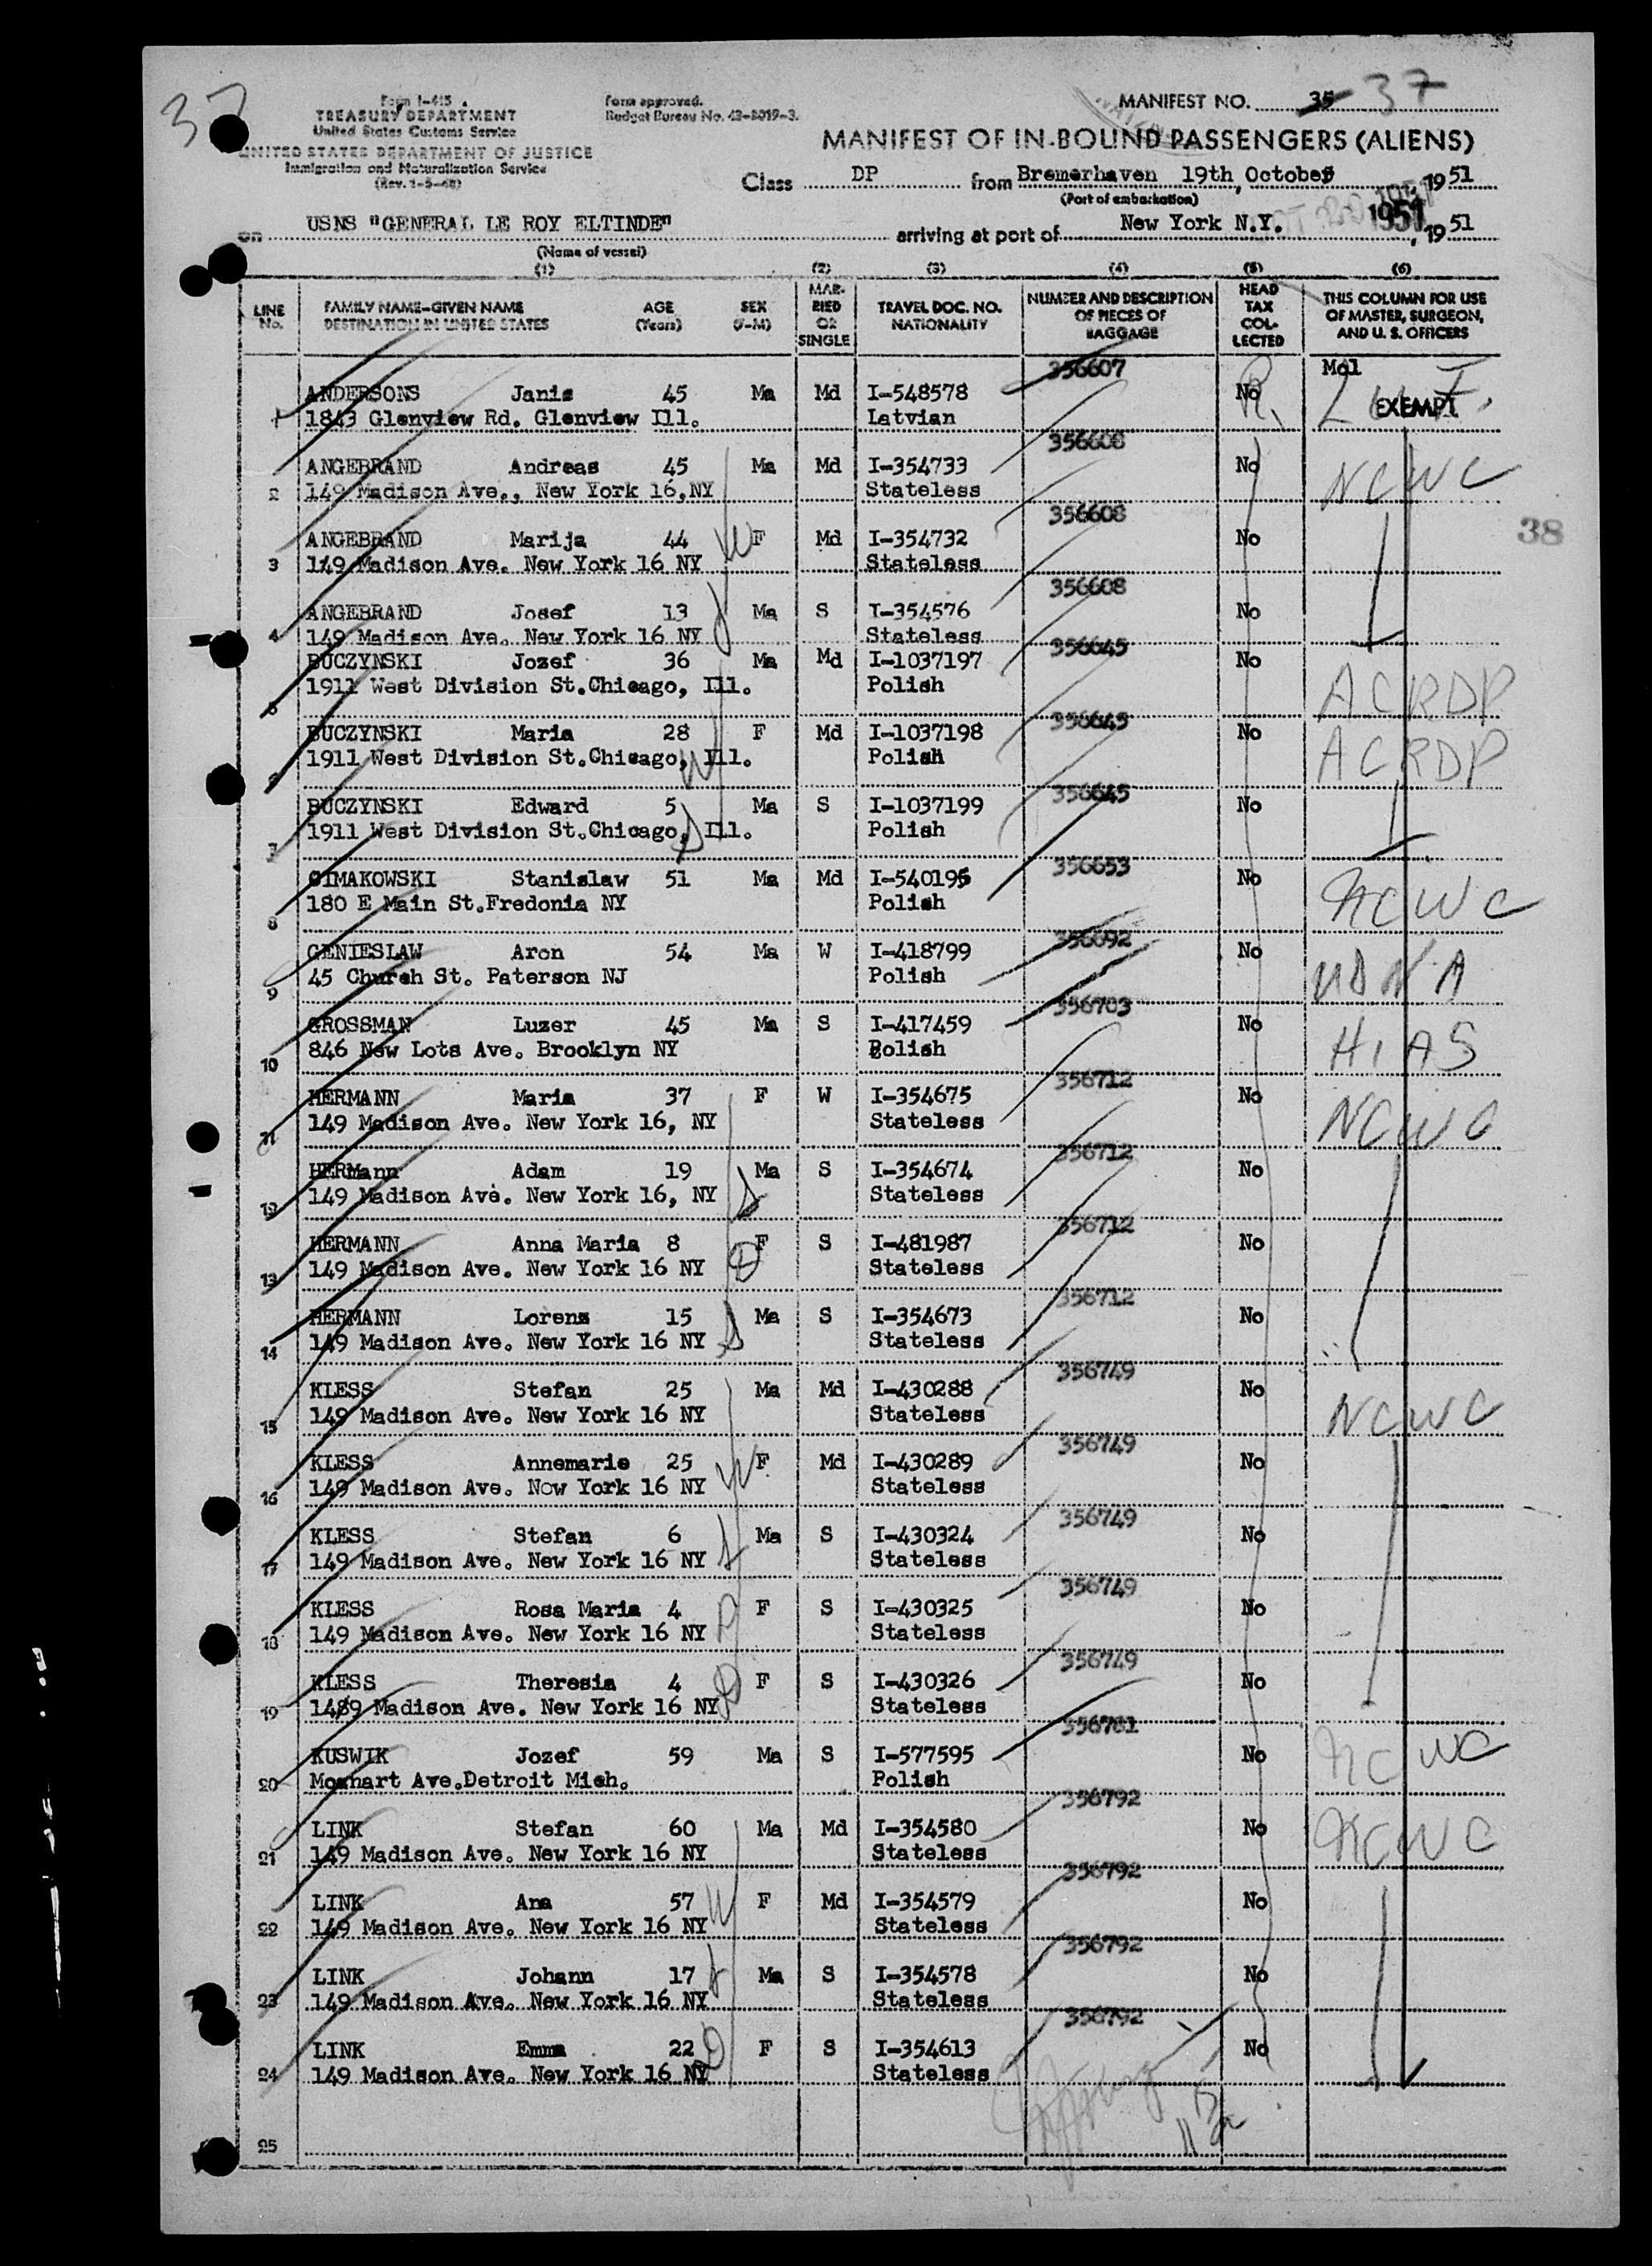 37
Form I-415
TREASURY DEPARTMENT
United States Customs Service
UNITED STATES DEPARTMENT OF JUSTICE
Immigration and Naturalization Service
(Rev. 1-5-48)
Form approved.
Budget Bureau No. 43-R019-3.
MANIFEST NO. 35 37
MANIFEST OF IN-BOUND PASSENGERS (ALIENS)
Class DP from Bremerhaven 19th, October, 1951
(Port of embarkation)
on USNS "GENERAL LE ROY ELTINDE" arriving at port of New York N.Y. 1951, 1951
(Name of vessel)
(1) (2) (3) (4) (5) (6)
LINE No. FAMILY NAME—GIVEN NAME DESTINATION IN UNITED STATES AGE (Years) SEX (F-M) MARRIED OR SINGLE TRAVEL DOC. NO. NATIONALITY NUMBER AND DESCRIPTION OF PIECES OF BAGGAGE HEAD TAX COLLECTED THIS COLUMN FOR USE OF MASTER, SURGEON, AND U. S. OFFICERS
356607 Mdl
ANDERSONS Janis 45 Ma Md I-548578 No EXEMPT
1 1843 Glenview Rd. Glenview Ill. Latvian
356608
ANGEBRAND Andreas 45 Ma Md I-354733 No NCWC
2 149 Madison Ave., New York 16,NY Stateless
356608
38
ANGEBRAND Marija 44 F Md I-354732 No
3 149 Madison Ave. New York 16 NY Stateless
356608
ANGEBRAND Josef 13 Ma S I-354576 No
4 149 Madison Ave. New York 16 NY Stateless
356645
BUCZYNSKI Jozef 36 Ma Md I-1037197 No
5 1911 West Division St.Chicago, Ill. Polish ACRDP
356645
BUCZYNSKI Maria 28 F Md I-1037198 No
6 1911 West Division St.Chicago, Ill. Polish ACRDP
356645
BUCZYNSKI Edward 5 Ma S I-1037199 No
7 1911 West Division St.Chicago, Ill. Polish
356653
CIMAKOWSKI Stanislaw 51 Ma Md I-540195 No NCWC
8 180 E Main St.Fredonia NY Polish
356692
GENIESLAW Aron 54 Ma W I-418799 No
9 45 Church St. Paterson NJ Polish USNA
356703
GROSSMAN Luzer 45 Ma S I-417459 No HIAS
10 846 New Lots Ave. Brooklyn NY Polish
356712
HERMANN Maria 37 F W I-354675 No NCWC
11 149 Madison Ave. New York 16, NY Stateless
356712
HERMann Adam 19 Ma S I-354674 No
12 149 Madison Ave. New York 16, NY Stateless
356712
HERMANN Anna Maria 8 F S I-481987 No
13 149 Madison Ave. New York 16 NY Stateless
356712
HERMANN Lorenz 15 Ma S I-354673 No
14 149 Madison Ave. New York 16 NY Stateless
356749
KLESS Stefan 25 Ma Md I-430288 No NCWC
15 149 Madison Ave. New York 16 NY Stateless
356749
KLESS Annemarie 25 F Md I-430289 No
16 149 Madison Ave. New York 16 NY Stateless
356749
KLESS Stefan 6 Ma S I-430324 No
17 149 Madison Ave. New York 16 NY Stateless
356749
KLESS Rosa Maria 4 F S I-430325 No
18 149 Madison Ave. New York 16 NY Stateless
356749
KLESS Theresia 4 F S I-430326 No
19 1489 Madison Ave. New York 16 NY Stateless
356781
KUSWIK Jozef 59 Ma S I-577595 No NCWC
20 Moenart Ave.Detroit Mich. Polish
356792
LINK Stefan 60 Ma Md I-354580 No NCWC
21 149 Madison Ave. New York 16 NY Stateless
356792
LINK Ana 57 F Md I-354579 No
22 149 Madison Ave. New York 16 NY Stateless
356792
LINK Johann 17 Ma S I-354578 No
23 149 Madison Ave. New York 16 NY Stateless
356792
LINK Emma 22 F S I-354613 No
24 149 Madison Ave. New York 16 NY Stateless
25